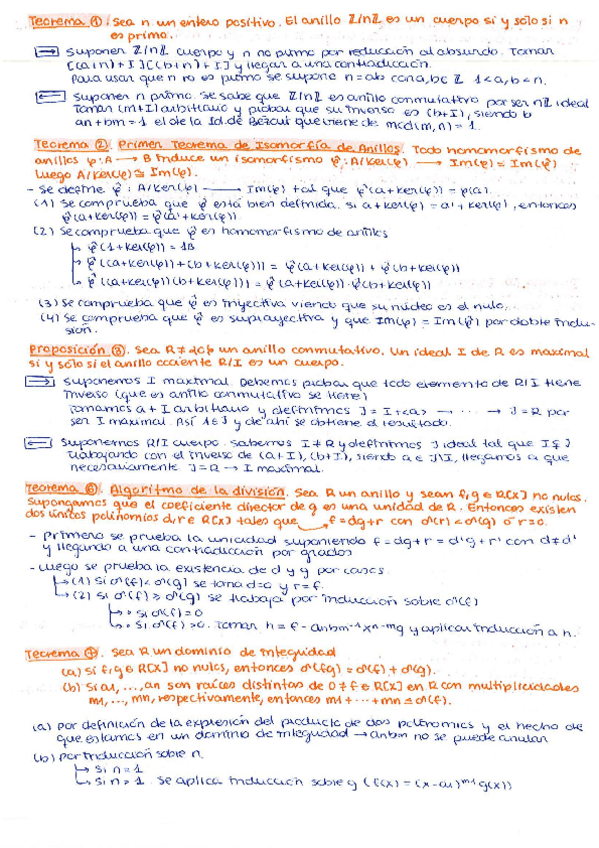 Teorema ①. Sea n un entero positivo. El anillo ℤ/nℤ es un cuerpo si y solo si n
es primo.
⇒ Suponer ℤ/nℤ cuerpo y n no primo por reducción al absurdo. Tomar
[(a)+I][(b)+I] y llegar a una contradicción.
Para usar que n no es primo se supone n=ab con a,b∈ℤ 1<a,b<n.
⇐ Suponer n primo. Se sabe que ℤ/nℤ es anillo conmutativo por ser nℤ ideal
Tomar (m+I) arbitrario y probar que su inverso es (b+I), siendo b
an+bm=1 el de la Id. de Bezout que viene de mcd(m,n)=1.
Teorema ②. Primer Teorema de Isomorfía de Anillos. Todo homomorfismo de
anillos φ: A → B induce un isomorfismo φ̂: A/Ker(φ) → Im(φ) = Im(φ̂)
Luego A/Ker(φ) ≅ Im(φ).
- Se define φ̂: A/Ker(φ) → Im(φ) tal que φ̂(a+Ker(φ)) = φ(a).
(1) Se comprueba que φ̂ está bien definida. si a+Ker(φ) = a'+Ker(φ), entonces
φ̂(a+Ker(φ)) = φ̂(a'+Ker(φ)).
(2) Se comprueba que φ̂ es homomorfismo de anillos
↳ φ̂(1+Ker(φ)) = 1B
↳ φ̂((a+Ker(φ))+(b+Ker(φ))) = φ̂(a+Ker(φ)) + φ̂(b+Ker(φ))
↳ φ̂((a+Ker(φ))(b+Ker(φ))) = φ̂(a+Ker(φ))·φ̂(b+Ker(φ))
(3) Se comprueba que φ̂ es inyectiva viendo que su núcleo es el nulo.
(4) Se comprueba que φ̂ es suprayectiva y que Im(φ) = Im(φ̂) por doble inclu-
sión.
Proposición ③. Sea R≠{0} un anillo conmutativo. Un ideal I de R es maximal
si y solo si el anillo cociente R/I es un cuerpo.
⇒ Suponemos I maximal. Debemos probar que todo elemento de R/I tiene
inverso (que es anillo conmutativo se tiene)
Tomamos a+I arbitrario y definimos J = I+<a> → ... → J=R por
ser I maximal. Así 1∈J y de ahí se obtiene el resultado.
⇐ Suponemos R/I cuerpo. Sabemos I≠R y definimos J ideal tal que I⊊J
Trabajando con el inverso de (a+I), (b+I), siendo a∈J\I, llegamos a que
necesariamente J=R → I maximal.
Teorema ⑥. Algoritmo de la división. Sea R un anillo y sean f,g∈R[X] no nulos.
Supongamos que el coeficiente director de g es una unidad de R. Entonces existen
dos únicos polinomios d,r∈R[X] tales que f=dg+r con σ(r)<σ(g) o r=0.
- Primero se prueba la unicidad suponiendo f=dg+r=d'g+r' con d≠d'
y llegando a una contradicción por grados
- Luego se prueba la existencia de d y g por casos
↳ (1) Si σ(f)<σ(g) se toma d=0 y r=f.
↳ (2) Si σ(f)≥σ(g) se trabaja por inducción sobre σ(f)
↳ • Si σ(f)=0
↳ • Si σ(f)>0. Tomar h = f - anbm⁻¹xⁿ⁻ᵐg y aplicar inducción a h.
Teorema ⑦. Sea R un dominio de integridad
(a) Si f,g∈R[X] no nulos, entonces σ(fg) = σ(f)+σ(g).
(b) Si a1,...,an son raíces distintas de 0≠f∈R[X] en R con multiplicidades
m1,...,mn, respectivamente, entonces m1+...+mn≤σ(f).
(a) Por definición de la expresión del producto de dos polinomios y el hecho de
que estamos en un dominio de integridad → anbm no se puede anular
(b) Por inducción sobre n.
↳ Si n=1
↳ Si n>1. Se aplica inducción sobre g (f(x) = (x-a1)ᵐ¹g(x))